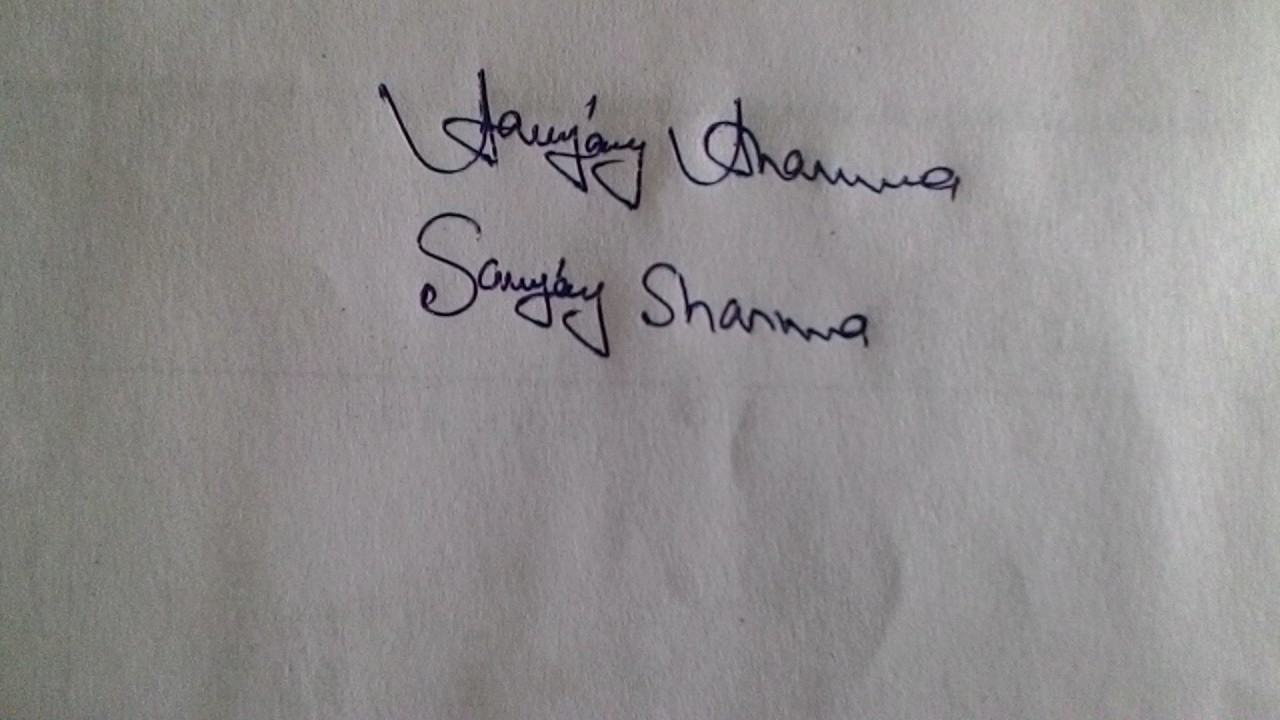 Sanjay Sharma
Sanjay Sharma